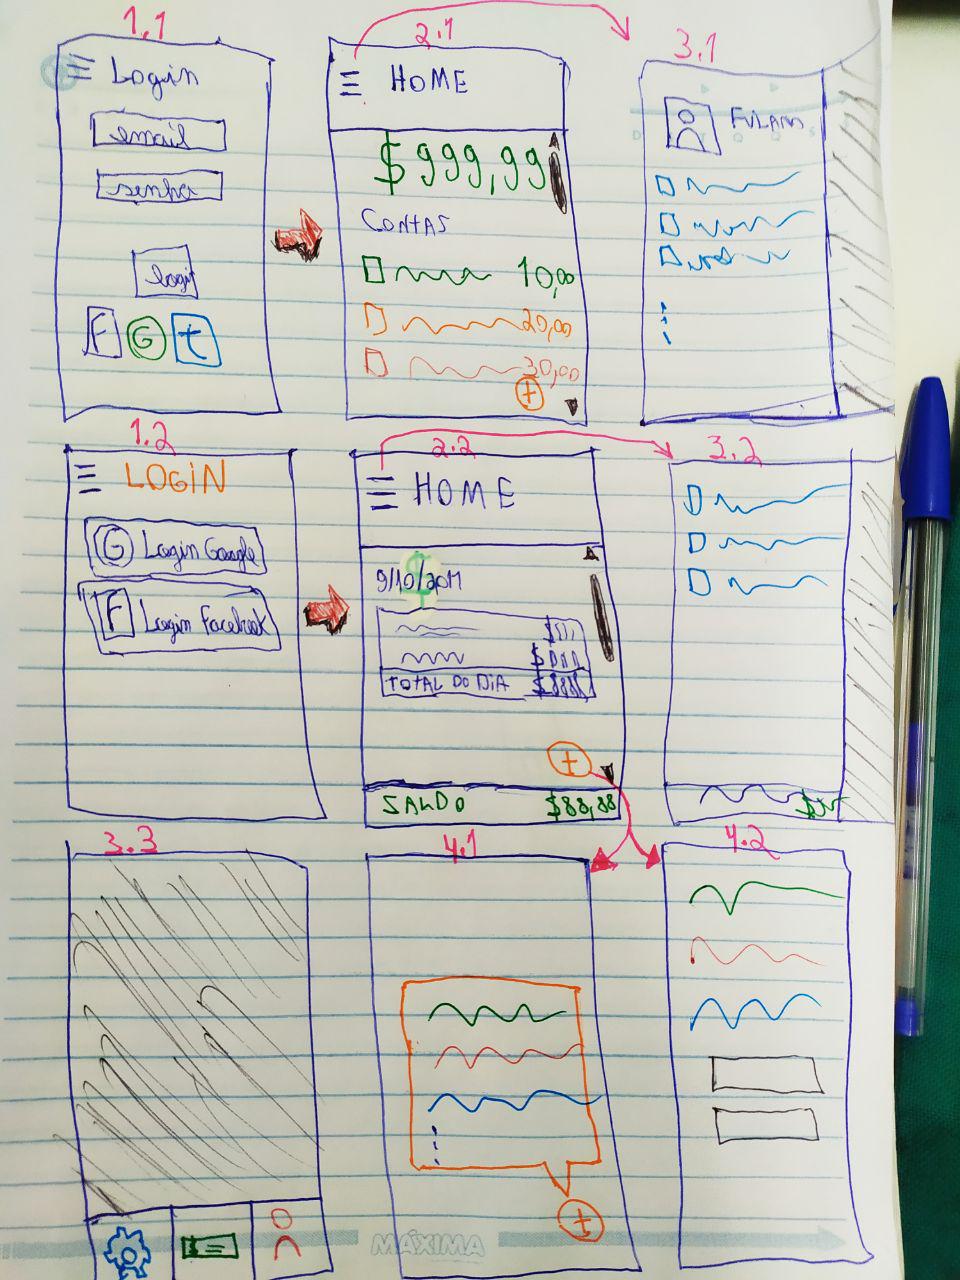 1.1
Login
email
senha
login
F G t
2.1
HOME
$999,99
CONTAS
10,00
20,00
30,00
+
3.1
FULANO
1.2
LOGIN
G Login Google
F Login Facebook
2.2
HOME
9/10/2011
TOTAL DO DIA $888
+
SALDO $88,88
3.2
3.3
4.1
+
4.2
MÁXIMA